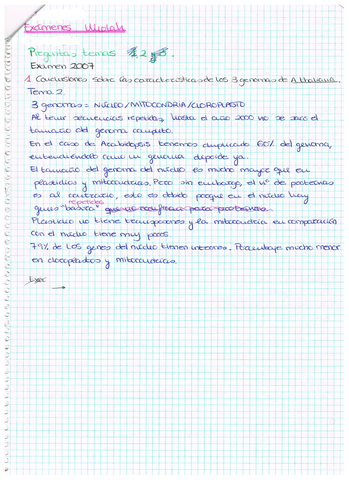 Exámenes
Preguntas temas 1, 2 y 3.
Examen 2007
1. Conclusiones sobre las características de los 3 genomas de A. thaliana.
Tema 2
3 genomas: NÚCLEO/MITOCONDRIA/CLOROPLASTO
Al tener secuencias repetidas, hasta el año 2000 no se sacó el
tamaño del genoma completo.
En el caso de Arabidopsis tenemos duplicado 60% del genoma,
entendiéndolo como un genoma diploide ya.
El tamaño del genoma del núcleo es mucho mayor que en
plastidios y mitocondrias. Pero sin embargo, el nº de proteínas
es al contrario, esto es debido porque en el núcleo hay
repetidos
genes "basura" que no codifican para proteínas.
Plastidio no tiene transposones y la mitocondria en comparación
con el núcleo tiene muy pocos
79% de los genes del núcleo tienen intrones. Porcentaje mucho menor
en cloroplastos y mitocondrias.